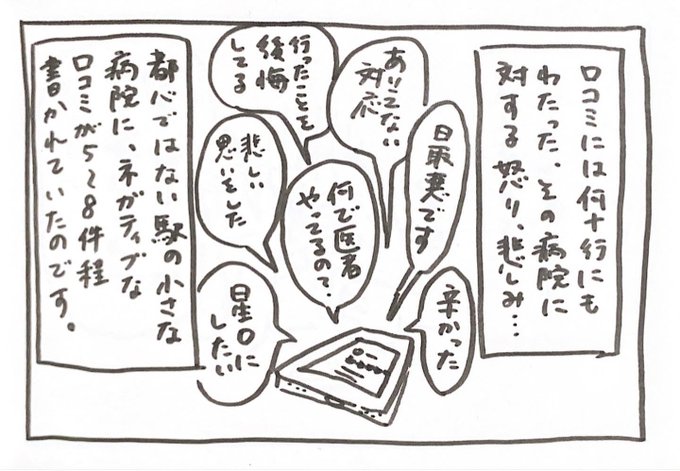 口コミには何十行にも
わたった、その病院に
対する怒り、悲しみ…
日取悪です
ありえない
対応
行ったことを
後悔
してる
辛かった
何で医者
やってるの？
悲しい
思いをした
星0に
したい
都心ではない駅の小さな
病院に、ネガティブな
口コミが5〜8件程
書かれていたのです。